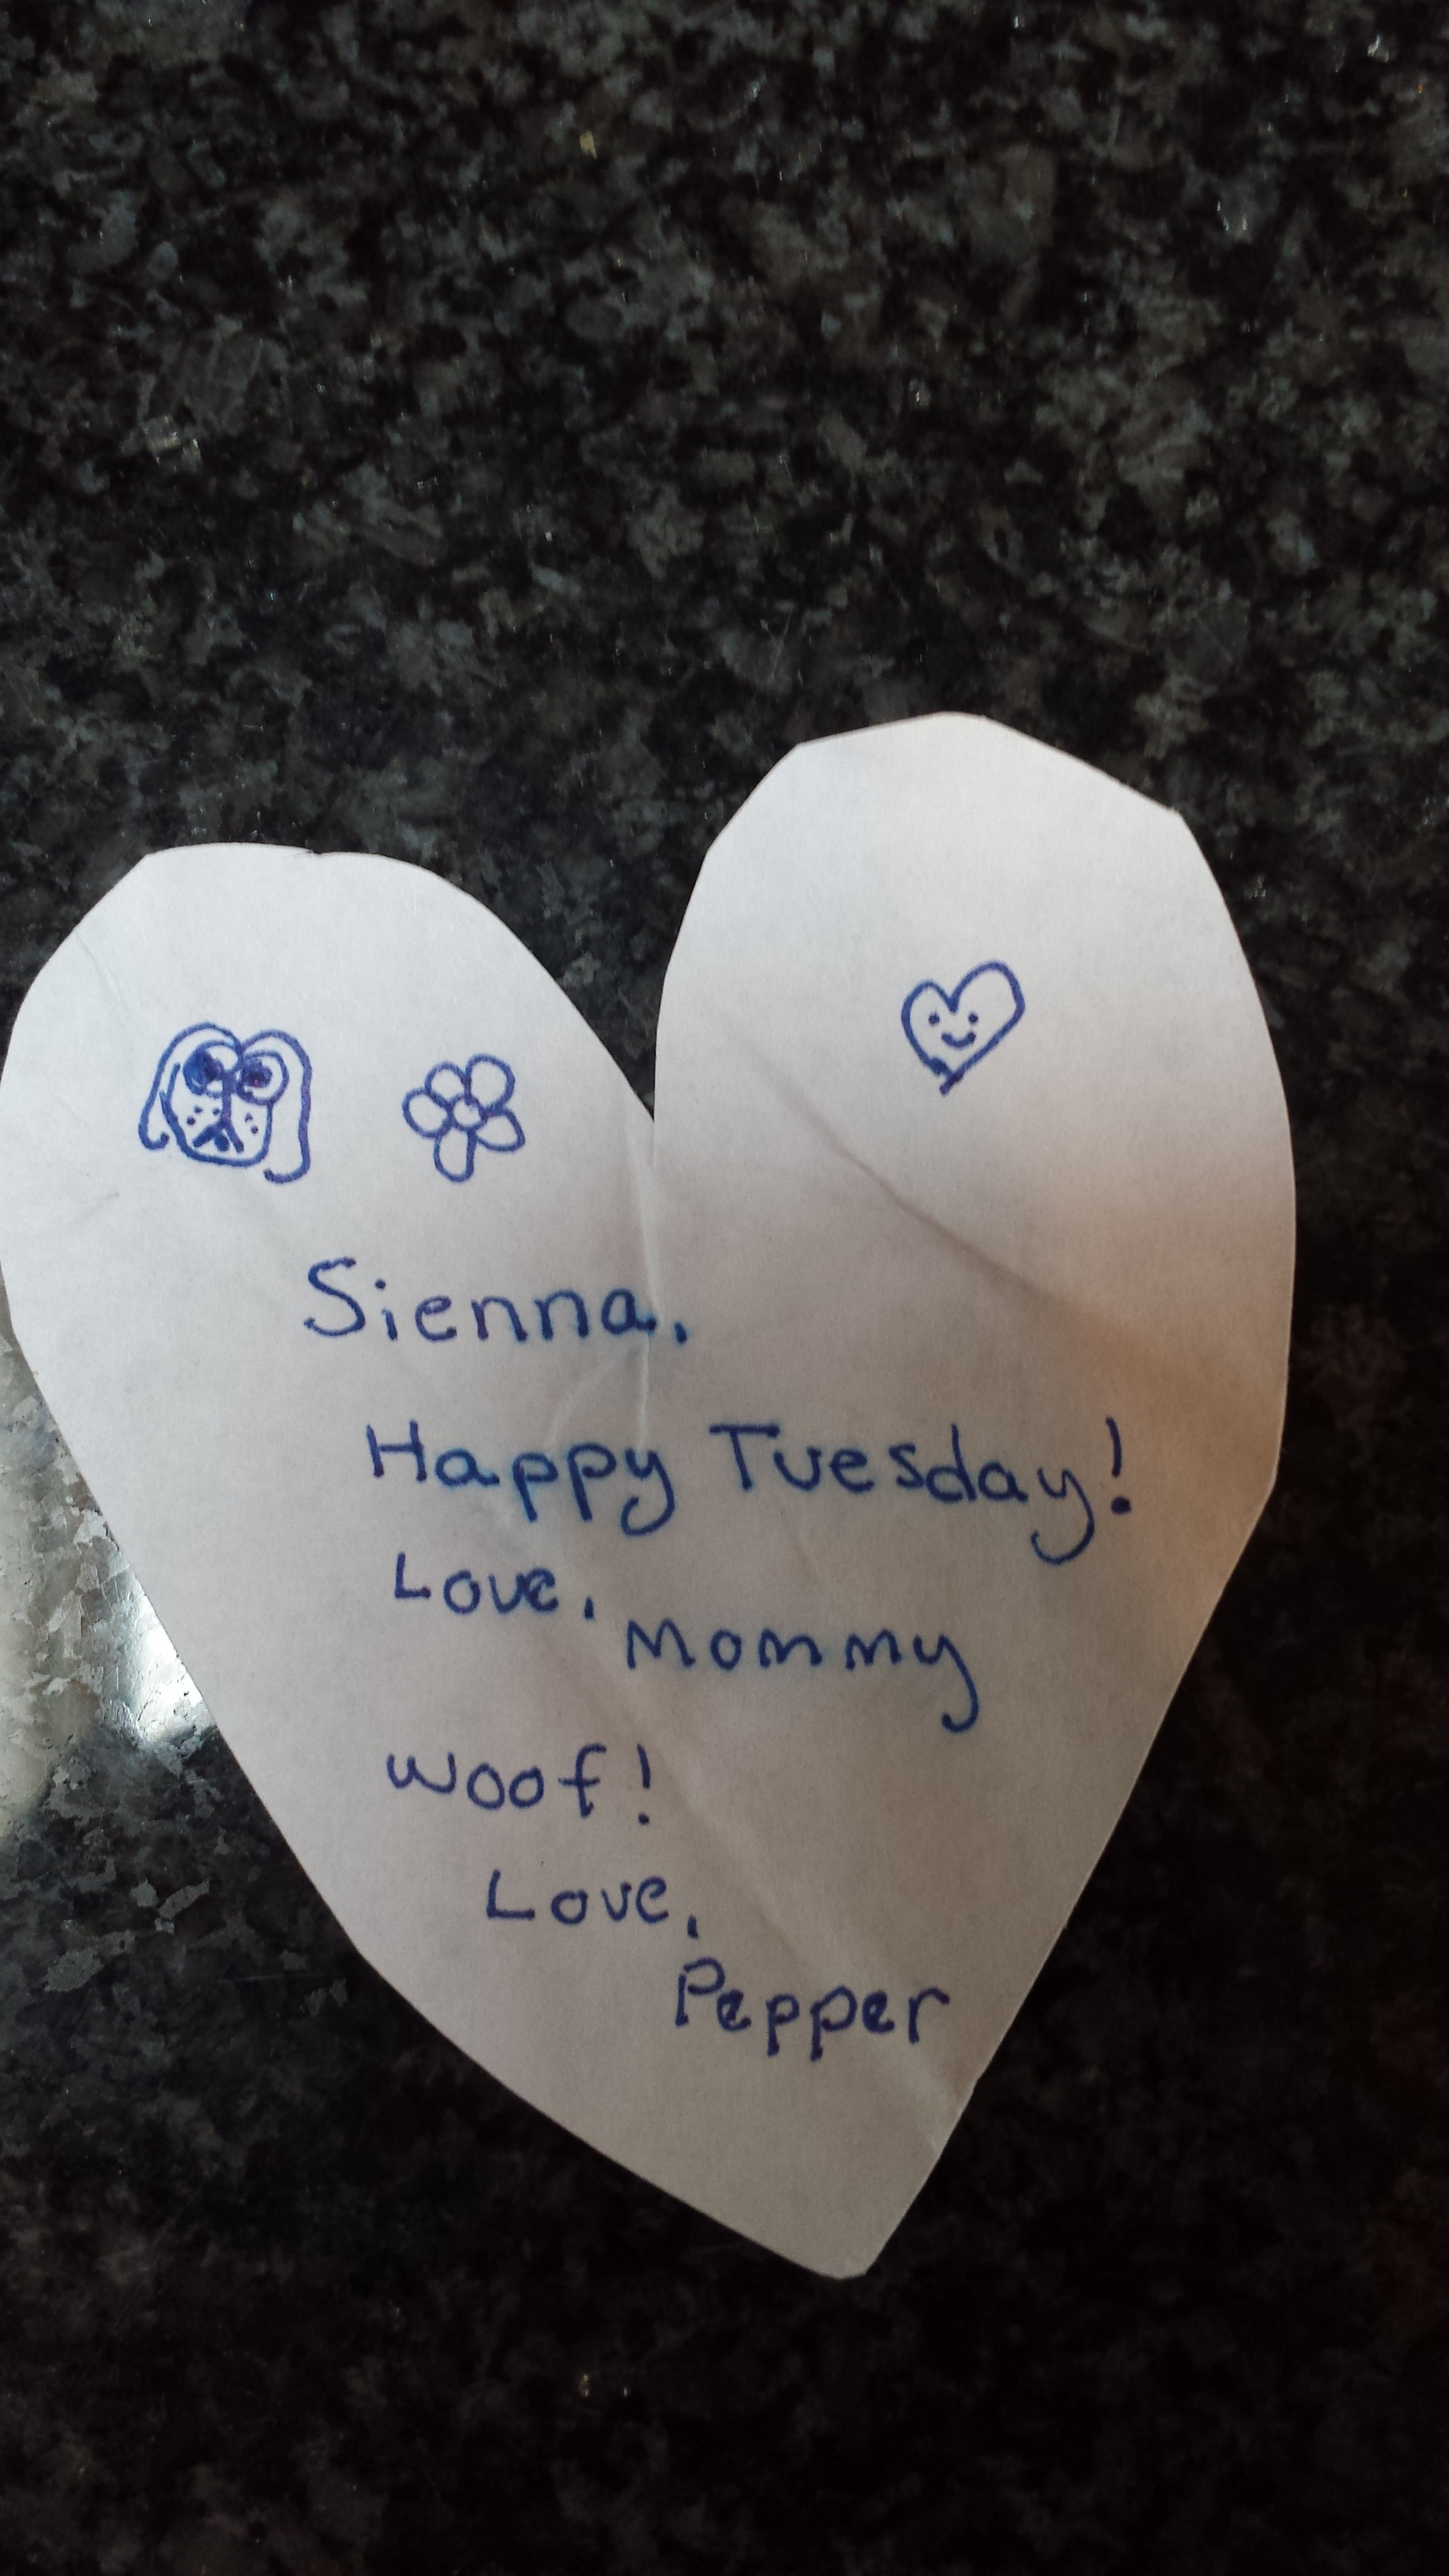 Sienna,
Happy Tuesday!
Love,
Mommy
Woof!
Love,
Pepper